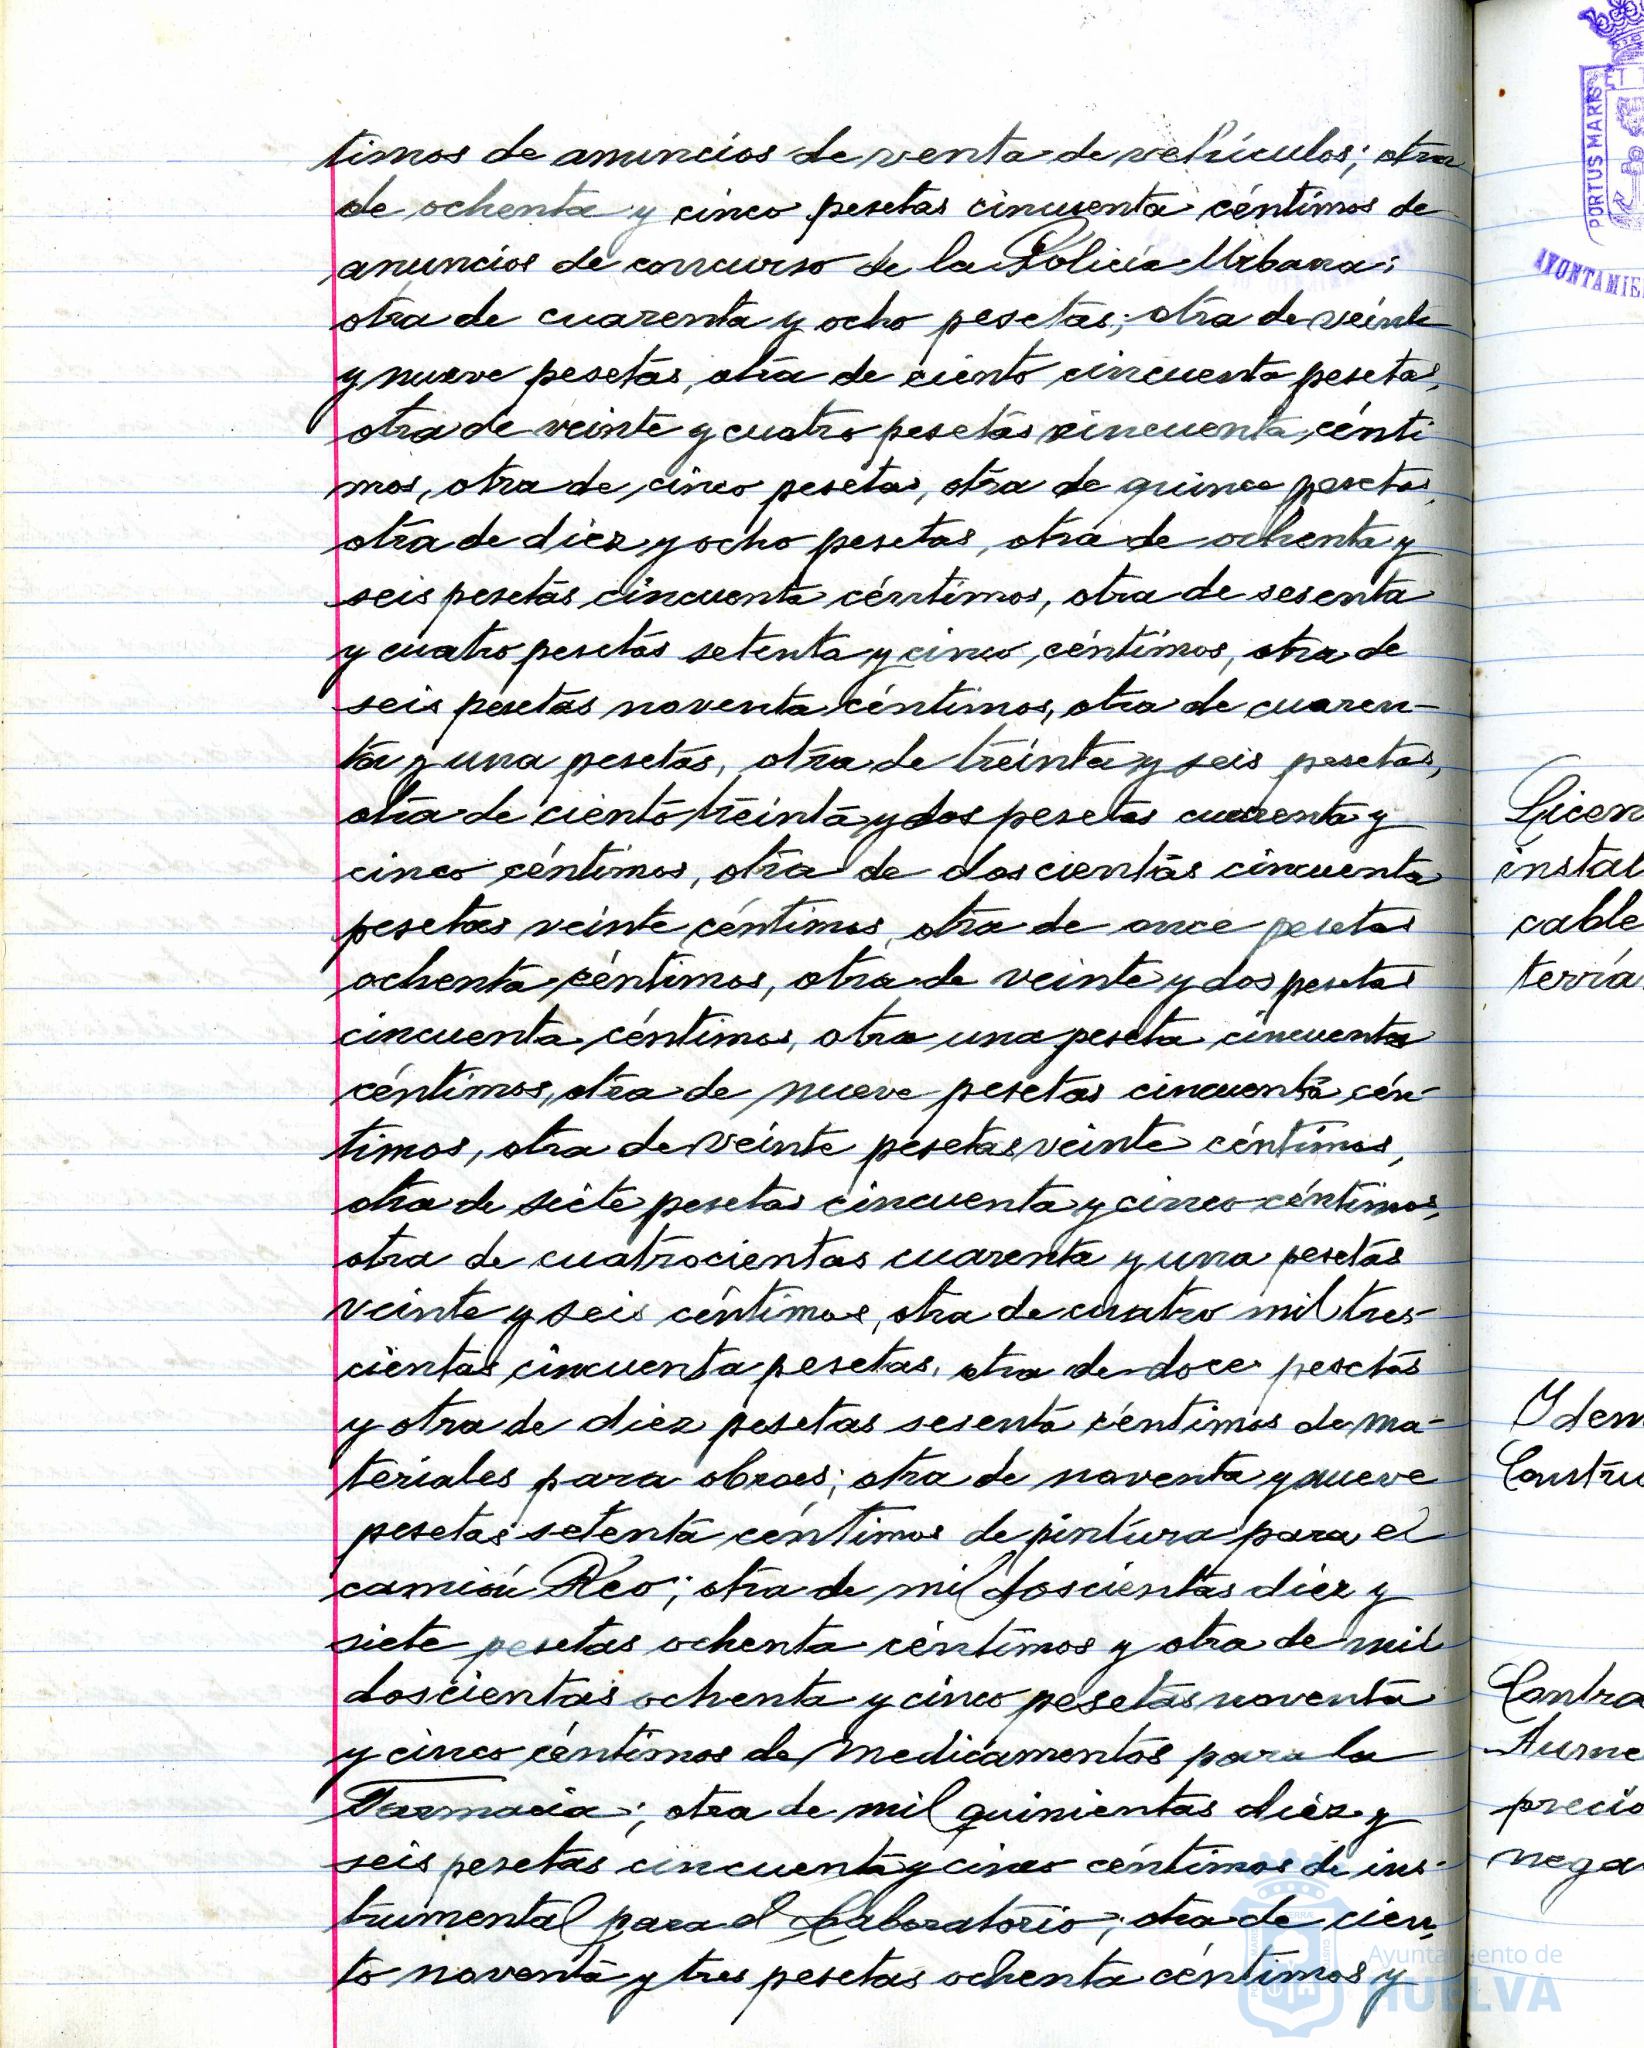 timos de anuncios de venta de vehículos; otra
de ochenta y cinco pesetas cincuenta céntimos de
anuncios de concurso de la Policía Urbana;
otra de cuarenta y ocho pesetas; otra de veinte
y nueve pesetas, otra de ciento cincuenta pesetas,
otra de veinte y cuatro pesetas cincuenta cénti
mos, otra de cinco pesetas, otra de quince pesetas,
otra de diez y ocho pesetas, otra de ochenta y
seis pesetas cincuenta céntimos, otra de sesenta
y cuatro pesetas setenta y cinco céntimos, otra de
seis pesetas noventa céntimos, otra de cuaren-
ta y una pesetas, otra de treinta y seis pesetas,
otra de ciento treinta y dos pesetas cuarenta y
cinco céntimos, otra de doscientas cincuenta
pesetas veinte céntimos, otra de once pesetas
ochenta céntimos, otra de veinte y dos pesetas
cincuenta céntimos, otra una peseta cincuenta
céntimos, otra de nueve pesetas cincuenta cén-
timos, otra de veinte pesetas veinte céntimos,
otra de siete pesetas cincuenta y cinco céntimos,
otra de cuatrocientas cuarenta y una pesetas
veinte y seis céntimos, otra de cuatro mil tres-
cientas cincuenta pesetas, otra de doce pesetas
y otra de diez pesetas sesenta céntimos de ma-
teriales para obras; otra de noventa y nueve
pesetas setenta céntimos de pintura para el
camión Reo; otra de mil doscientas diez y
siete pesetas ochenta céntimos y otra de mil
doscientas ochenta y cinco pesetas noventa
y cinco céntimos de medicamentos para la
Farmacia; otra de mil quinientas diez y
seis pesetas cincuenta y cinco céntimos de ins-
trumental para el Laboratorio; otra de cien-
to noventa y tres pesetas ochenta céntimos y
PORTUS MARIS ET T
AYUNTAMIE
Licen
instal
cable
terría
Idem
Constru
Contra
Aume
precio
nega
Ayuntamiento de
HUELVA